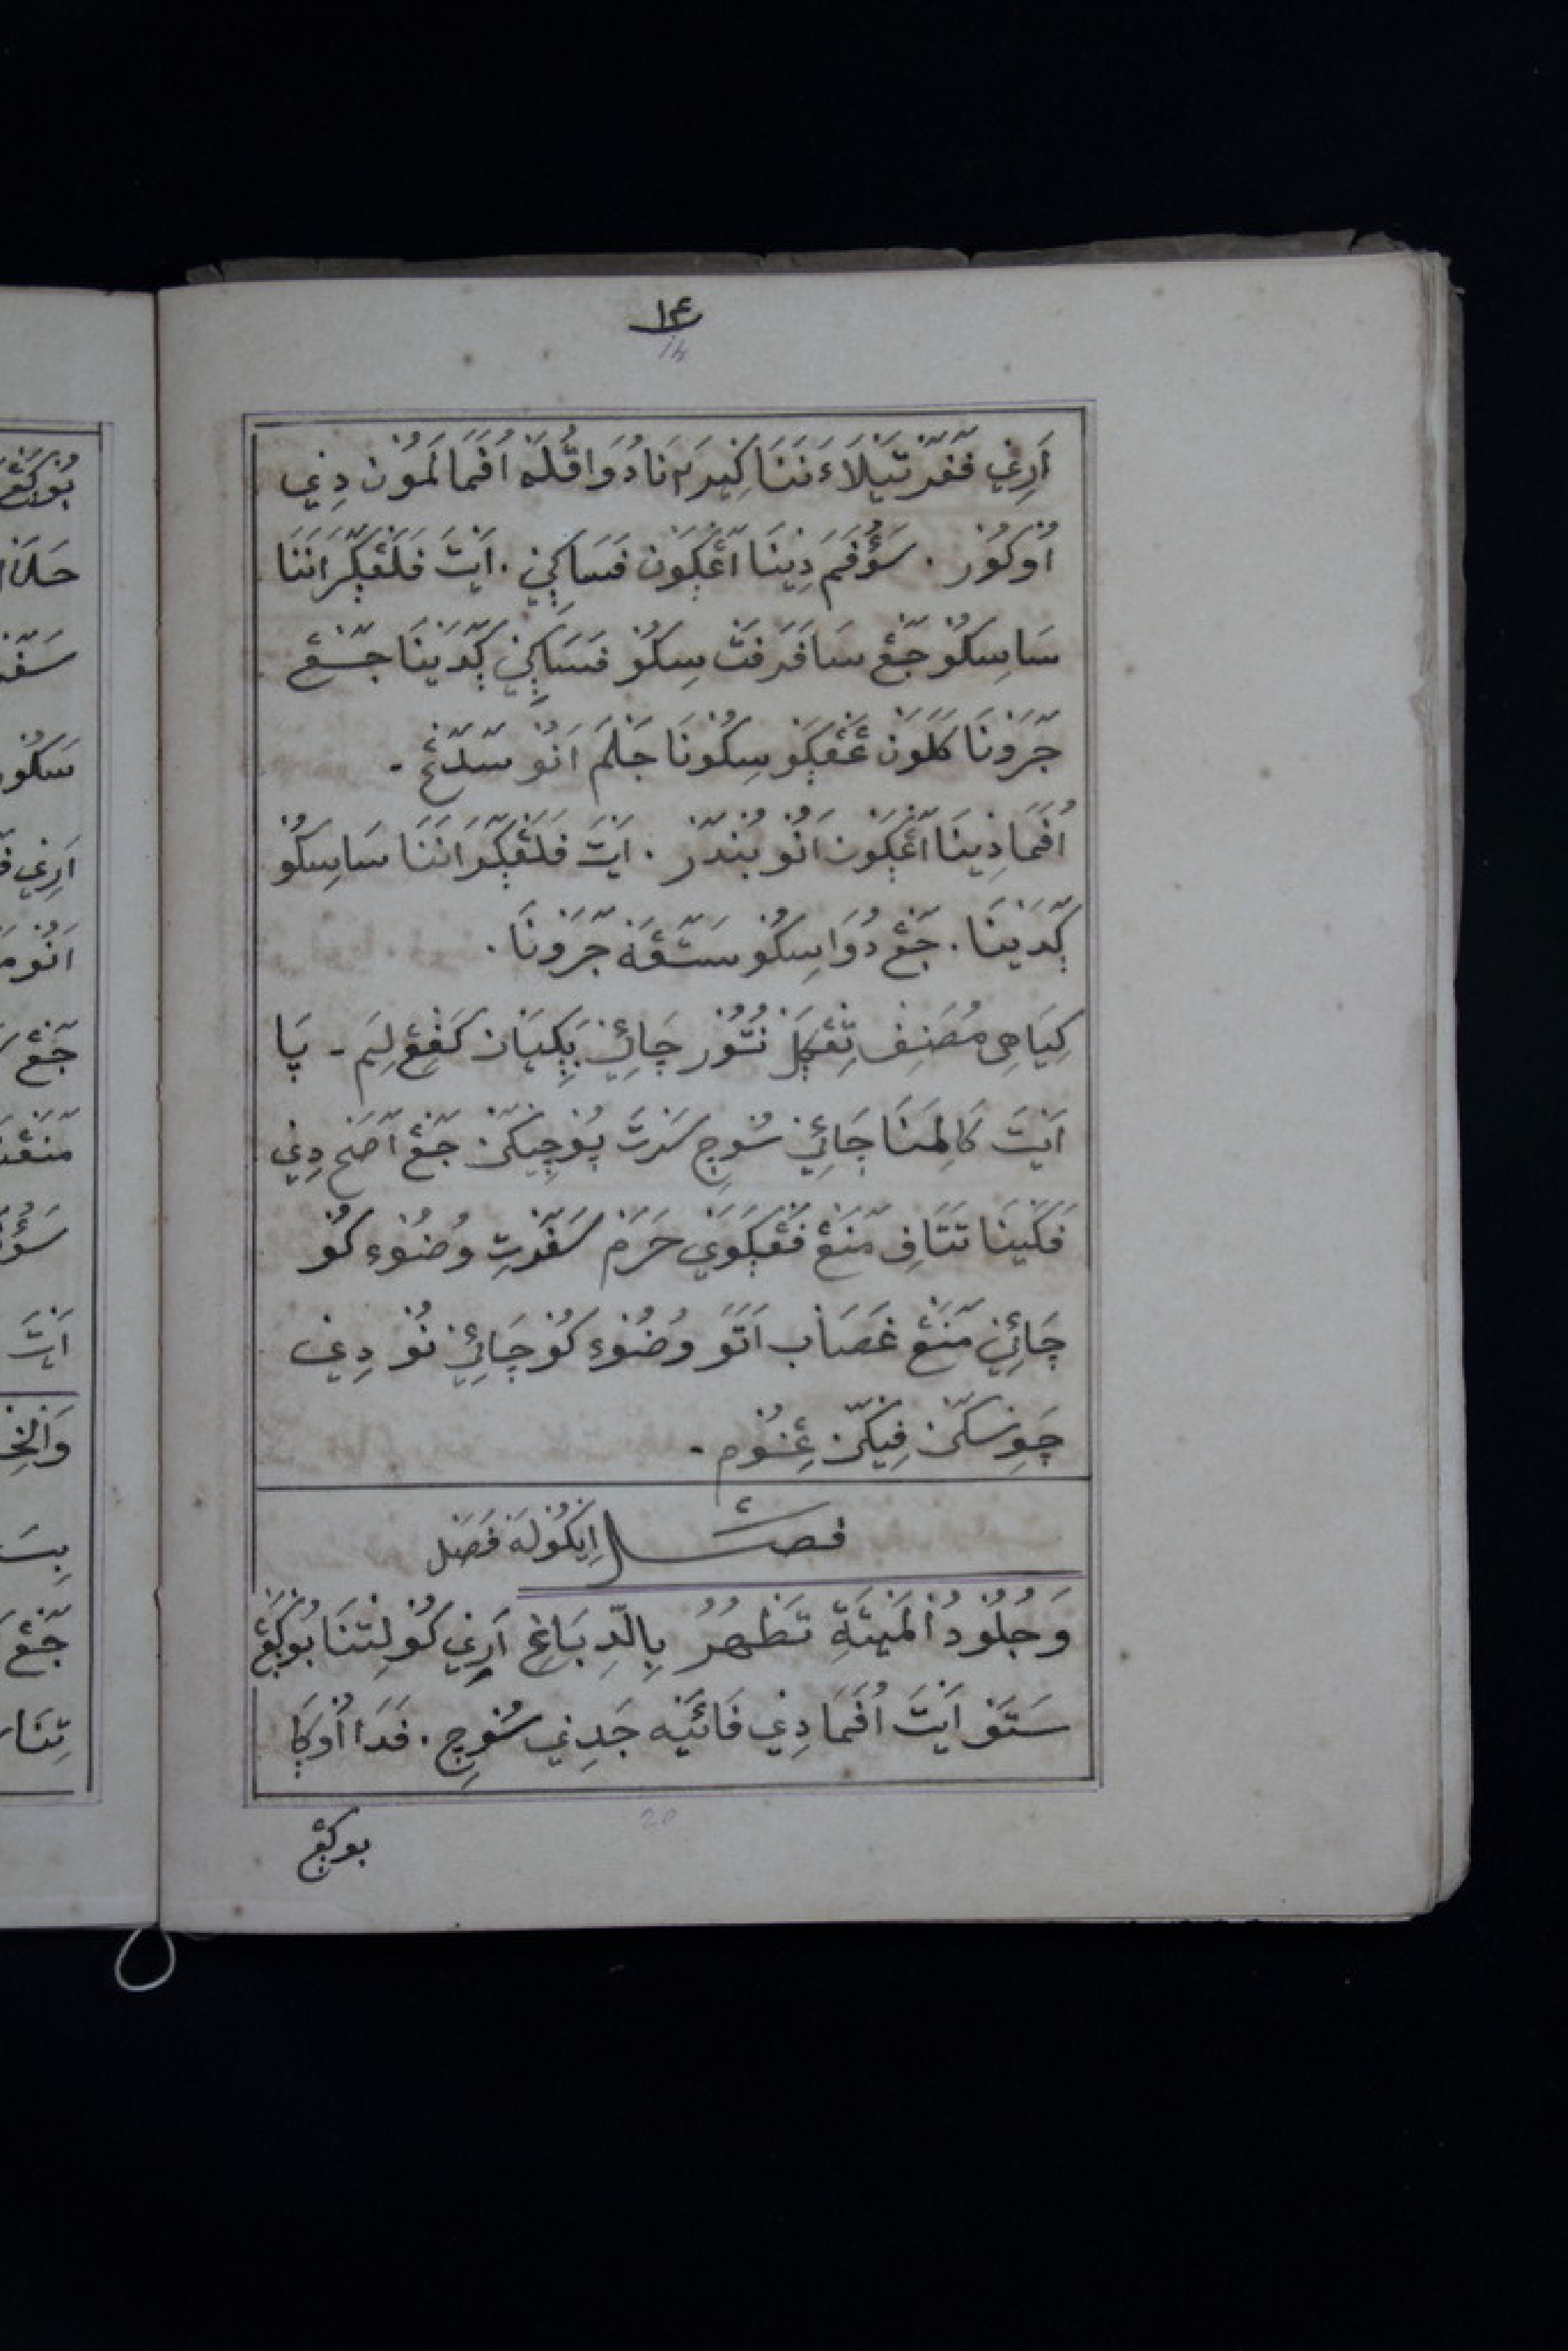 ١٤
14
اَرِنِي فَڠَرْتَيْلَاءَنَنَا كِيْرَ٢ نَا دُوَا قُلَّهْ اُفَمَا لَمَوُنْ دِنِي
اُوْكُوْرْ . سَؤُفَمَ دِيْنَا اَڠْݢَوْنْ فَسَاݢِيْ . اَيْتَ فَلَڠْݢَرَانَنَا
سَاسِكُوْ جَڠْ سَافَرَفَتْ سِكُوْ فَسَاݢِيْ ݢَدَيْنَا جَڠْ
جَرَوْنَا كَلَوَنْ عَڠْݢَوْ سِكُوْنَا جَلْمَ اَنُوْ سَدَڠْ -
اُفَمَا دِيْنَا اَڠْݢَوْنْ اَنُوْ بُنْدَرْ . اَيْتَ فَلَڠْݢَرَانَنَا سَاسِكُوْ
ݢَدَيْنَا . جَڠْ دُوَا سِكُوْ سَتَڠَهْ جَرَوْنَا .
كِيَاهِى مُصَنِفْ تِڠْكَلْ نُتُوْرْ چَائِيْ بَݢِيَانْ كَڤِڠْ لِيَم - يَا
اَيْتَ كَالِمَنَا چَائِيْ سُوْچِ سَرْتَ پُوْچِيْكَنْ جَڠْ اَصَحْ دِيْ
فَكَيْنَا تَتَافِ مَنَڠْ فَڠْݢَوَيْ حَرَمْ سَفَرْتِ وُضُوْءِ كُوْ
چَائِيْ مَنَڠْ غَصَابْ اَتَوَ وُضُوْءِ كُوْ چَائِيْ نُوْ دِيْ
چَوِسْكَنْ فِيْكَنْ عِنُوْمِ -
فصل اِيْكُوْلَهْ فَصَلْ
وَجُلُوْدُ الْمَيْتَةِ تَطْهُرُ بِالدِّبَاغِ اَرِنِي كُوْلِتْنَا بُوْݢَڠْ
سَتَوْ اَيْتَ اُفَمَا دِيْ فَائَيْهْ جَدِيْ سُوْچِ . فَدَا اُوْݢَا
بوݢڠ
20